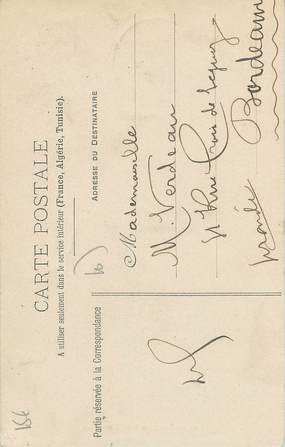 CARTE POSTALE
A utiliser seulement dans le service intérieur (France, Algérie, Tunisie).
Partie réservée à la Correspondance
ADRESSE DU DESTINATAIRE
Mademoiselle
M. Verdeau
Rue Croix de Seguey
Bordeaux
Gironde